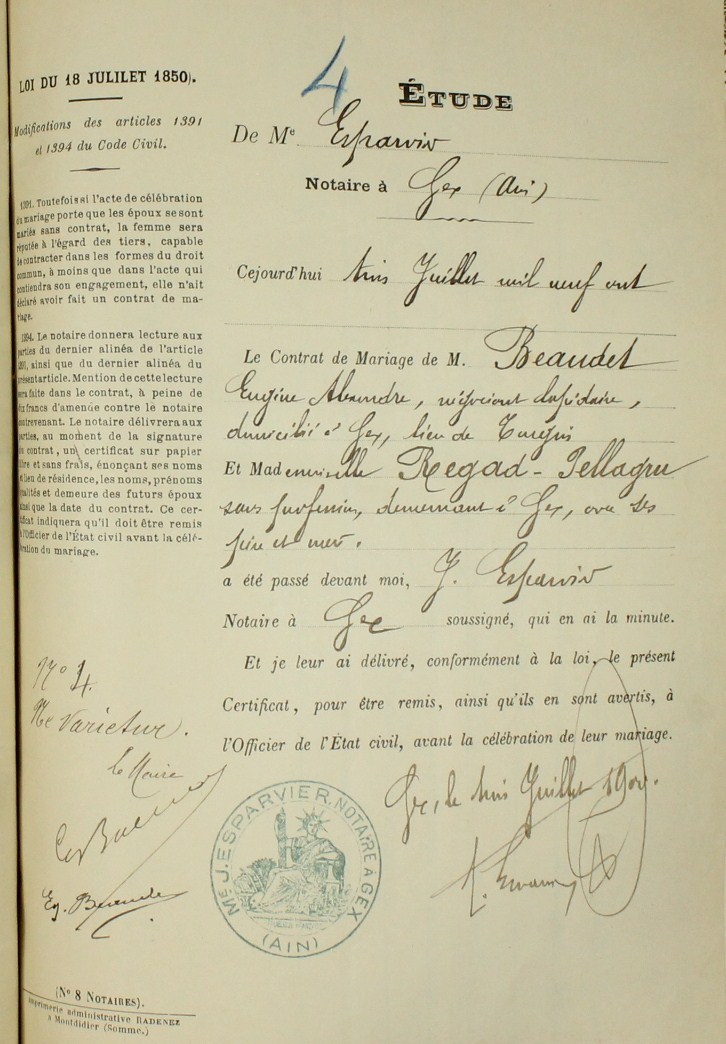 LOI DU 18 JULILET 1850).
Modifications des articles 1391
et 1394 du Code Civil.
1391. Toutefois si l'acte de célébration
du mariage porte que les époux se sont
mariés sans contrat, la femme sera
réputée à l'égard des tiers, capable
de contracter dans les formes du droit
commun, à moins que dans l'acte qui
contiendra son engagement, elle n'ait
déclaré avoir fait un contrat de ma-
riage.
1394. Le notaire donnera lecture aux
parties du dernier alinéa de l'article
1391, ainsi que du dernier alinéa du
présent article. Mention de cette lecture
sera faite dans le contrat, à peine de
dix francs d'amende contre le notaire
contrevenant. Le notaire délivrera aux
parties, au moment de la signature
du contrat, un certificat sur papier
libre et sans frais, énonçant ses noms
et lieu de résidence, les noms, prénoms
qualités et demeure des futurs époux
ainsi que la date du contrat. Ce cer-
tificat indiquera qu'il doit être remis
à l'Officier de l'État civil avant la célé-
bration du mariage.
N° 4.
Ne Varietur.
le Maire
(N° 8 NOTAIRES).
Imprimerie administrative RADENEZ
à Montdidier (Somme).
4
ÉTUDE
De Me Esparvier
Notaire à Gex (Ain)
Cejourd'hui trois Juillet mil neuf cent
Le Contrat de Mariage de M. Beaudet
Eugène Alexandre, négociant lapidaire,
domicilié à Gex, lieu de
Et Mademoiselle Regad-Pellagru
sans profession, demeurant à Gex, avec ses
père et mère.
a été passé devant moi, J. Esparvier
Notaire à Gex soussigné, qui en ai la minute.
Et je leur ai délivré, conformément à la loi, le présent
Certificat, pour être remis, ainsi qu'ils en sont avertis, à
l'Officier de l'État civil, avant la célébration de leur mariage.
Gex, le trois Juillet 1900.
Me J. ESPARVIER, NOTAIRE A GEX
(AIN)